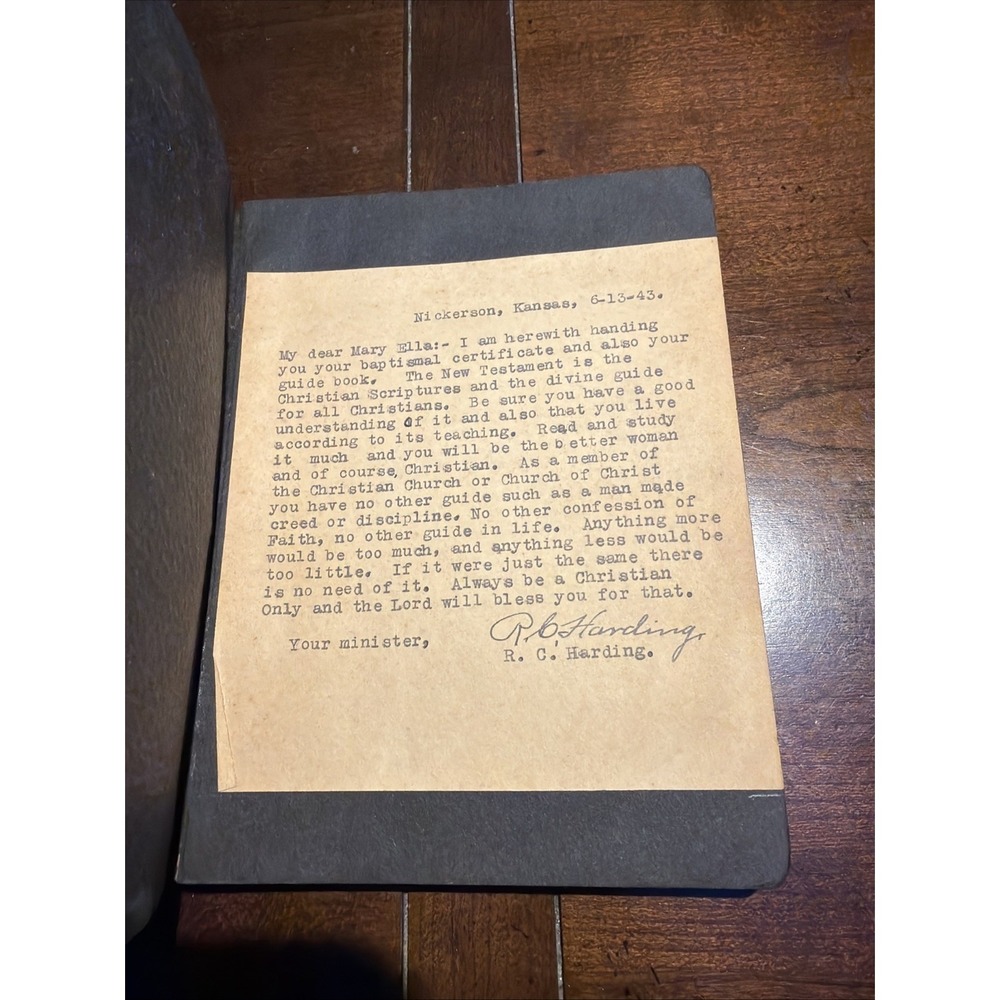 Nickerson, Kansas, 6-13-43.
My dear Mary Ella:- I am herewith handing
you your baptismal certificate and also your
guide book. The New Testament is the
Christian Scriptures and the divine guide
for all Christians. Be sure you have a good
understanding of it and also that you live
according to its teaching. Read and study
it much and you will be the better woman
and of course, Christian. As a member of
the Christian Church or Church of Christ
you have no other guide such as a man made
creed or discipline. No other confession of
Faith, no other guide in life. Anything more
would be too much, and anything less would be
too little. If it were just the same there
is no need of it. Always be a Christian
Only and the Lord will bless you for that.
Your minister, R. C. Harding.
R. C. Harding.